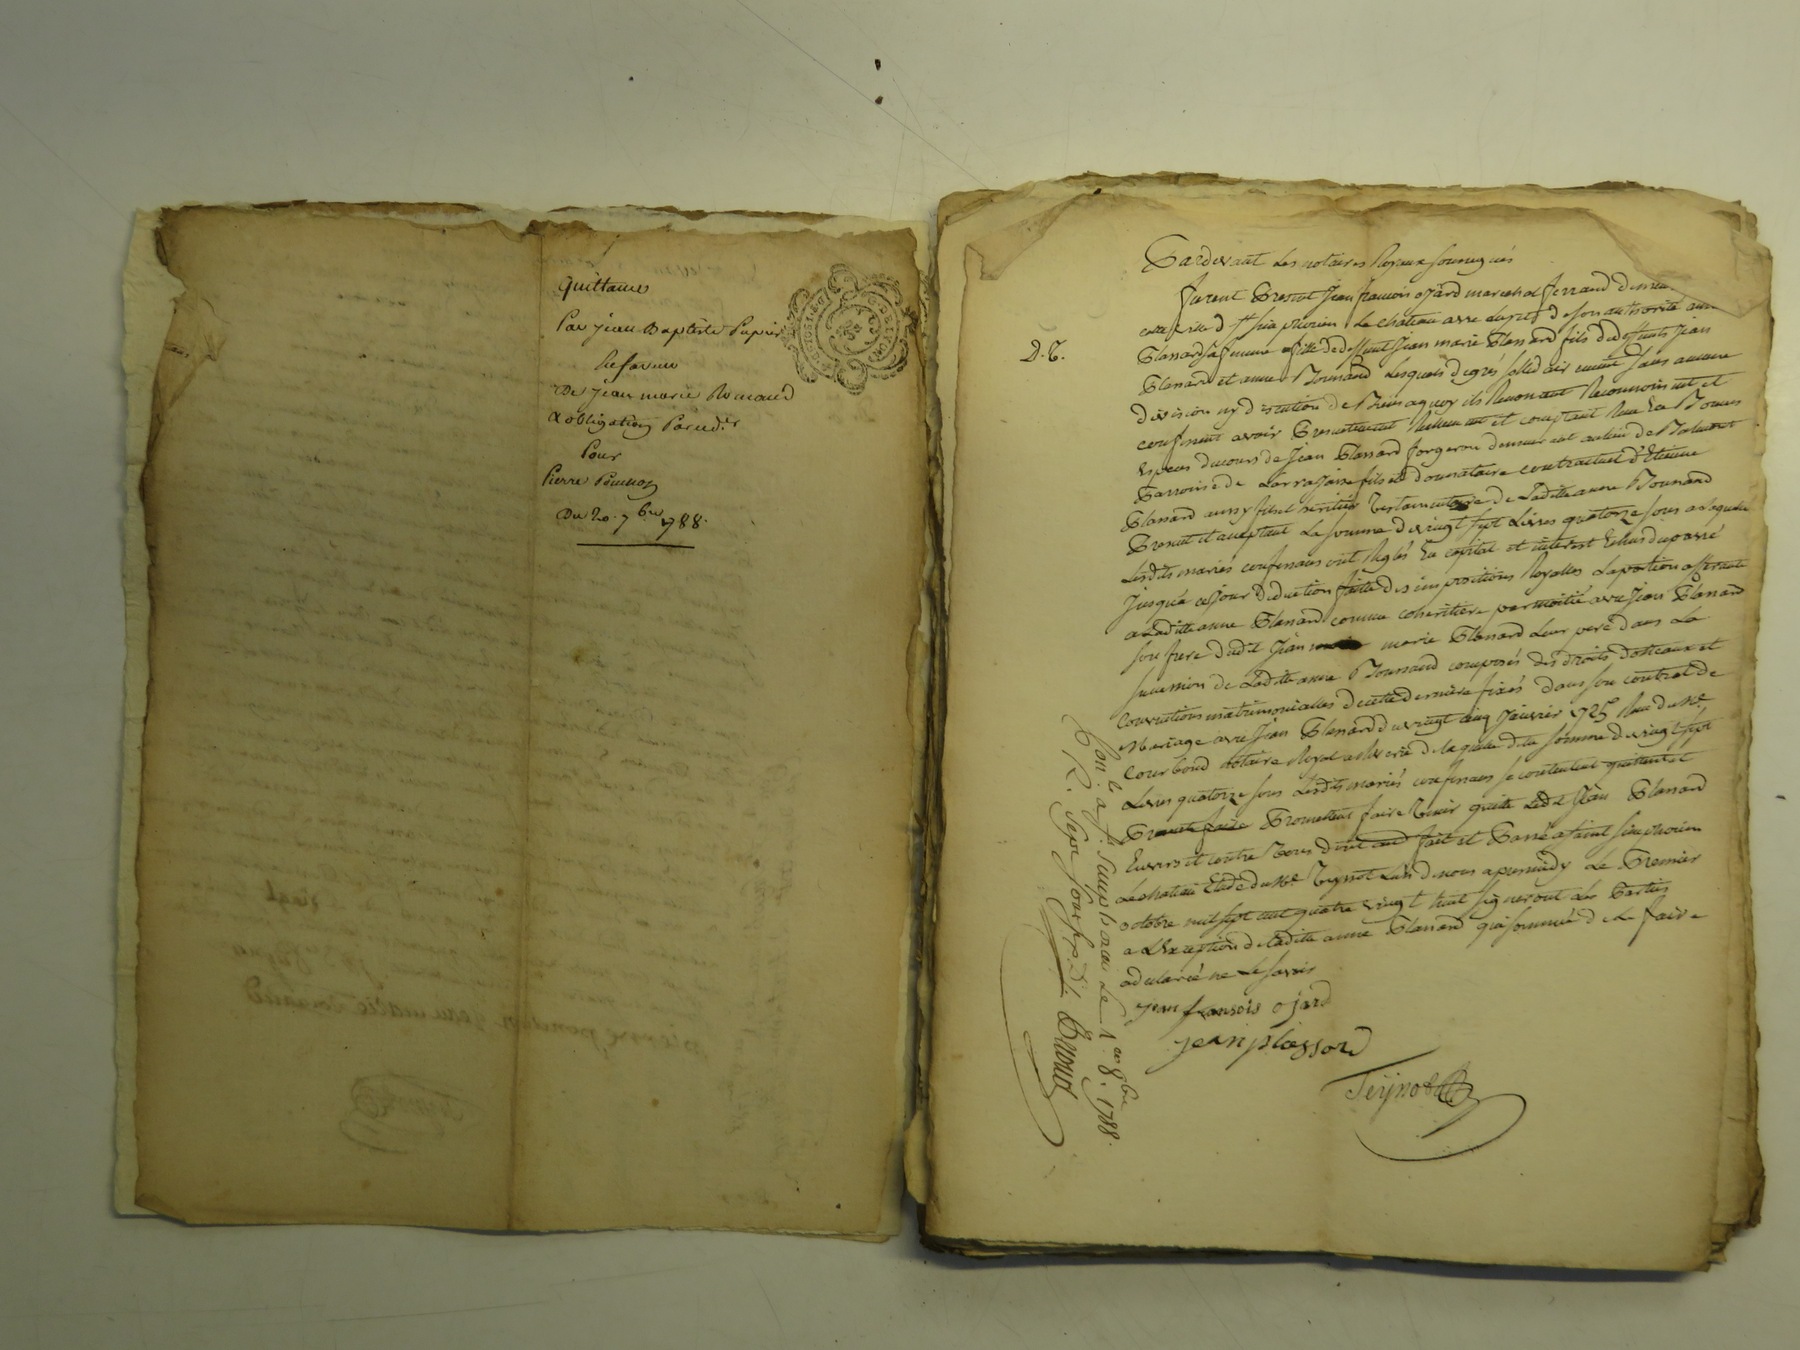 quittance
Par jean Baptiste Papier
En faveur
De jean marie Renaud
& obligation Par led.t
Pour
Pierre Poncon
Du 20. 7bre 1788.
D. T.
Pardevant Les notaires Royaux soussignés
furent Present Jean francois ojard marechal ferrand
cette ville d St simphorien Le chateau avec de son authorité anne
Plassard sa femme fille de deffunt Jean marie Plassard fils de deffunts Jean
Plassard et anne Bonnand Lesquels de grés solidairement sans aucune
division ny discution de Biens a quoy ils Renoncent Reconnoissent et
confessent avoir Presentement Reellement et comptant Reçu En Bonnes
Especes du cours de Jean Plassard forgeron demeurant au lieu de
Parroisse de Larrajasse fils et donnataire contractuel d'Etienne
Plassard aussy fils et heritier testamentaire de Laditte anne Bonnand
Present et acceptant La somme de vingt sept Livres quatorze sous a laquelle
Lesdits mariés confessans ont Reglés En capital et interest Echus du passé
jusqu'a ce jour deduction faitte des impositions Royalles La portion afferante
a Laditte anne Plassard comme coheritiere par moitié avec Jean Plassard
son frere dudit Jean marie Plassard Leur pere dans La
succession de Laditte anne Bonnand composés des droits dotteaux et
conventions matrimonialles de cette derniere fixés dans son contrat de
Mariage avec Jean Plassard du vingt cinq janvier 1725 Reçu du Me.
Courbond notaire Royal a de laquelle ditte somme de vingt sept
Livres quatorze sous Lesdits mariés confessans se contentent quittent et
Promettent faire tenir quitte Ledit Jean Plassard
Envers et contre tous dont acte fait et Passé a saint simphorien
Le chateau Etude du Me. Teynot L'un de nous apres midy Le Premier
octobre mil sept cent quatre vingt huit signeront Les Parties
a L'Exception de Ladite anne Plassard qui sommée de Le faire
a declaré ne Le savoir
jean fransois ojard
jean plassard
Teynot
Con.lé a St. Simphorien Le 1er 8bre 1788.
R. Sept sous six d.